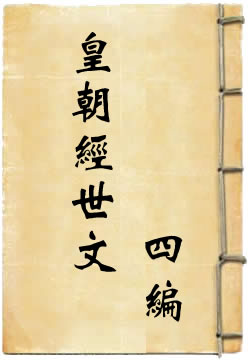 皇朝經世文
四編